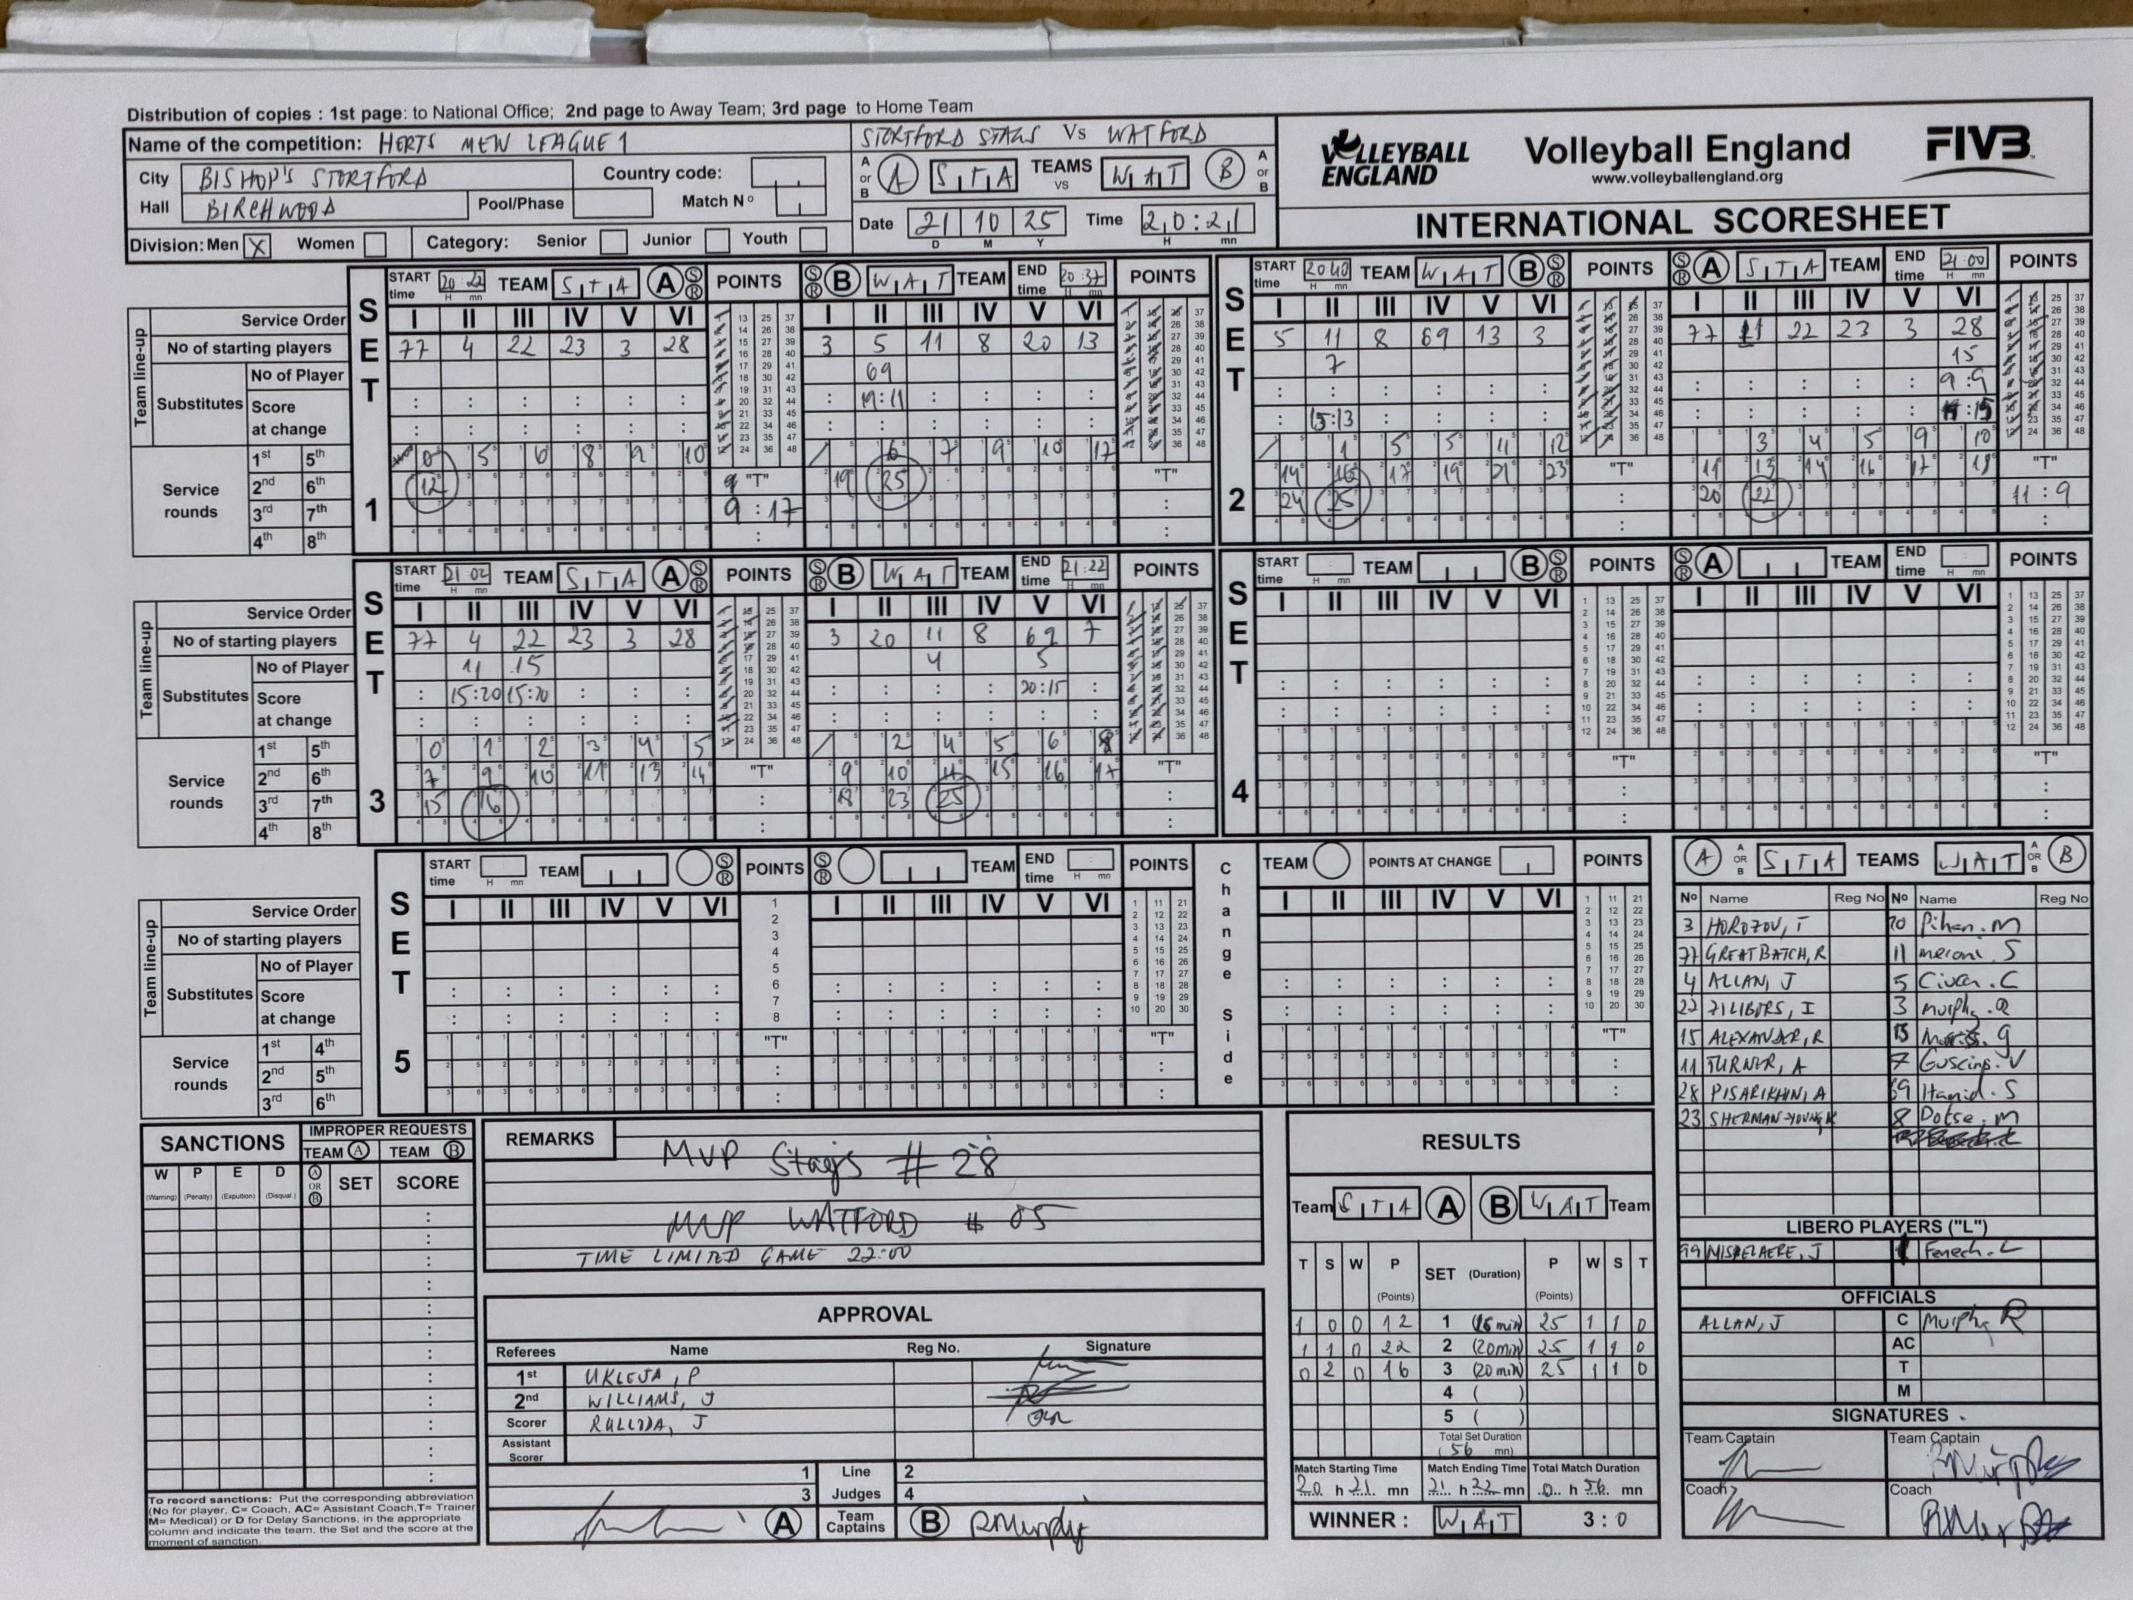 Distribution of copies : 1st page: to National Office; 2nd page to Away Team; 3rd page to Home Team
Name of the competition: HERTS MEN LEAGUE 1
STORTFORD STAGS Vs WATFORD
City BISHOP'S STORTFORD Country code:
Hall BIRCHWOOD Pool/Phase Match Nº
Division: Men X Women Category: Senior Junior Youth
A or B A STA TEAMS VS WAT B A or B
Date 21 10 25 Time 20:21
D M Y H mn
VOLLEYBALL ENGLAND
Volleyball England
www.volleyballengland.org
FIVB
INTERNATIONAL SCORESHEET
SET 1
START time 20:22 TEAM STA A S R POINTS S R B WAT TEAM END time 20:37 POINTS
Service Order I II III IV V VI I II III IV V VI
Team line-up
No of starting players 77 4 22 23 3 28 3 5 11 8 20 13
Substitutes No of Player 69
Score at change 19:11
Service rounds
1st 5th 0 5 6 8 9 10 6 7 9 10 17
2nd 6th 12 "T" 19 25 "T"
3rd 7th 9:17
4th 8th
SET 2
START time 20:40 TEAM WAT B S R POINTS S R A STA TEAM END time 21:00 POINTS
I II III IV V VI I II III IV V VI
5 11 8 69 13 3 77 22 23 3 28
7 15
9:9
15:13
1 5 5 11 12 3 4 5 9 10
14 16 17 19 21 23 "T" 11 13 14 16 17 18 "T"
24 25 20 22 11:9
SET 3
START time 21:02 TEAM STA A S R POINTS S R B WAT TEAM END time 21:22 POINTS
Service Order I II III IV V VI I II III IV V VI
Team line-up
No of starting players 77 4 22 23 3 28 3 20 11 8 69 7
Substitutes No of Player 11 15 4 5
Score at change 15:20 15:20 20:15
Service rounds
1st 5th 0 1 2 3 4 5 2 4 5 6 8
2nd 6th 7 9 10 11 13 14 "T" 9 10 11 15 16 17 "T"
3rd 7th 15 16 18 23 25
4th 8th
SET 4
START time TEAM B S R POINTS S R A TEAM END time POINTS
I II III IV V VI I II III IV V VI
"T" "T"
SET 5
START time TEAM S R POINTS S R TEAM END time POINTS Change Side TEAM POINTS AT CHANGE POINTS
Service Order I II III IV V VI I II III IV V VI I II III IV V VI
Team line-up
No of starting players
Substitutes No of Player
Score at change
Service rounds
1st 4th "T" "T" "T"
2nd 5th
3rd 6th
A A OR B STA TEAMS WAT A OR B B
Nº Name Reg No Nº Name Reg No
3 HOROZOV, T
77 GREATBATCH, R 11 meroni. S
4 ALLAN, J 5 Civan. C
22 ZILIBERS, I 3 murphy. R
15 ALEXANDER, R
11 TURNER, A 7
28 PISARIKHIN, A 69 Hamid. S
23 SHERMAN-YOUNG, K 8 Dotse. m
LIBERO PLAYERS ("L")
99 MISPELAERE, J Fenech. L
OFFICIALS
ALLAN, J C Murphy R
AC
T
M
SIGNATURES
Team Captain Team Captain
Coach Coach
SANCTIONS IMPROPER REQUESTS
TEAM A TEAM B
W P E D A OR B SET SCORE
(Warning) (Penalty) (Expultion) (Disqual.)
To record sanctions: Put the corresponding abbreviation
(No for player, C= Coach, AC= Assistant Coach,T= Trainer
M= Medical) or D for Delay Sanctions, in the appropriate
column and indicate the team, the Set and the score at the
moment of sanction
REMARKS
MVP Stags # 28
MVP WATFORD # 05
TIME LIMITED GAME 22:00
APPROVAL
Referees Name Reg No. Signature
1st UKLEJA, P
2nd WILLIAMS, J
Scorer
Assistant Scorer
1 Line 2
3 Judges 4
A Team Captains B RMurphy
RESULTS
Team STA A B WAT Team
T S W P (Points) SET (Duration) P (Points) W S T
1 0 0 12 1 (16 min) 25 1 1 0
1 1 0 22 2 (20 min) 25 1 1 0
0 2 0 16 3 (20 min) 25 1 1 0
4 ( )
5 ( )
Total Set Duration
(56 mn)
Match Starting Time Match Ending Time Total Match Duration
20 h 21 mn 21 h 22 mn 0 h 56 mn
WINNER : WAT 3:0